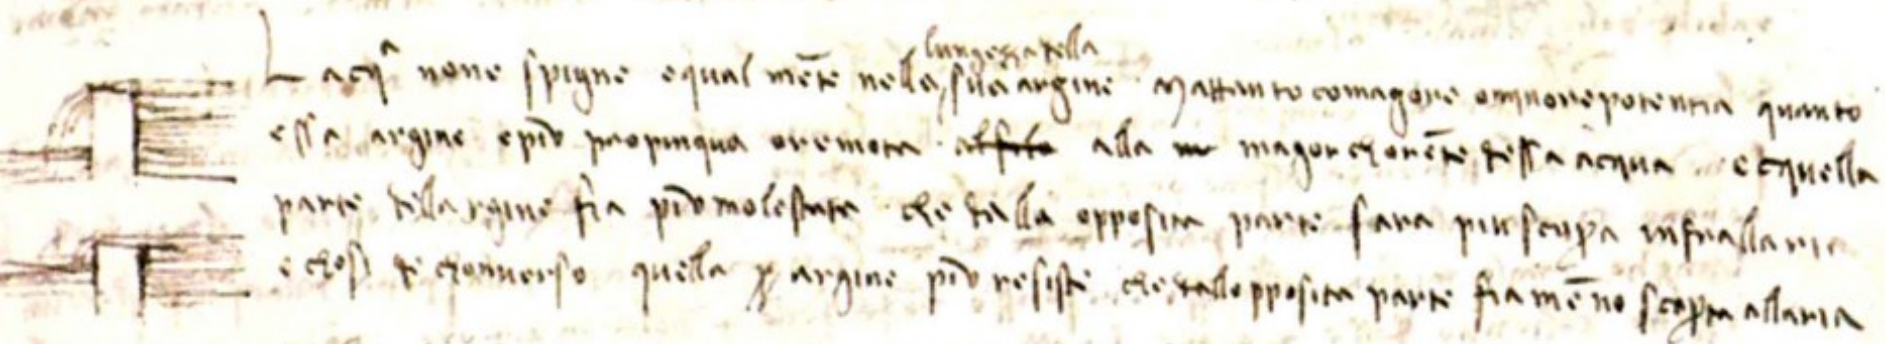 lungezza della
Lacqua none spigne equal mēte nella sua argine Mattanto comagore ominore potentia quanto
essa argine epiv propinqua oremota alfilo alla magor chorēte dessa acqua e cquella
parte dellargine fia piv molestata che dalla opposita parte sara piv scupa infrallaria
e chosi de chonverso quella p argine piv resiste che dallopposita parte fia mēno scoperta allaria